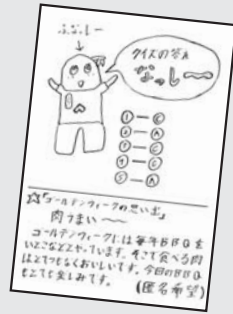 ふなっしー
クイズの答え
なっしー〜
①−C
②−A
③−C
④−C
⑤−A
☆「ゴールデンウィークの思い出」
肉うまい〜〜
ゴールデンウィークには毎年BBQを
いとことやっています。そこで食べる肉
はとてつもなくおいしいです。今回のBBQ
もとても楽しみです。
(匿名希望)